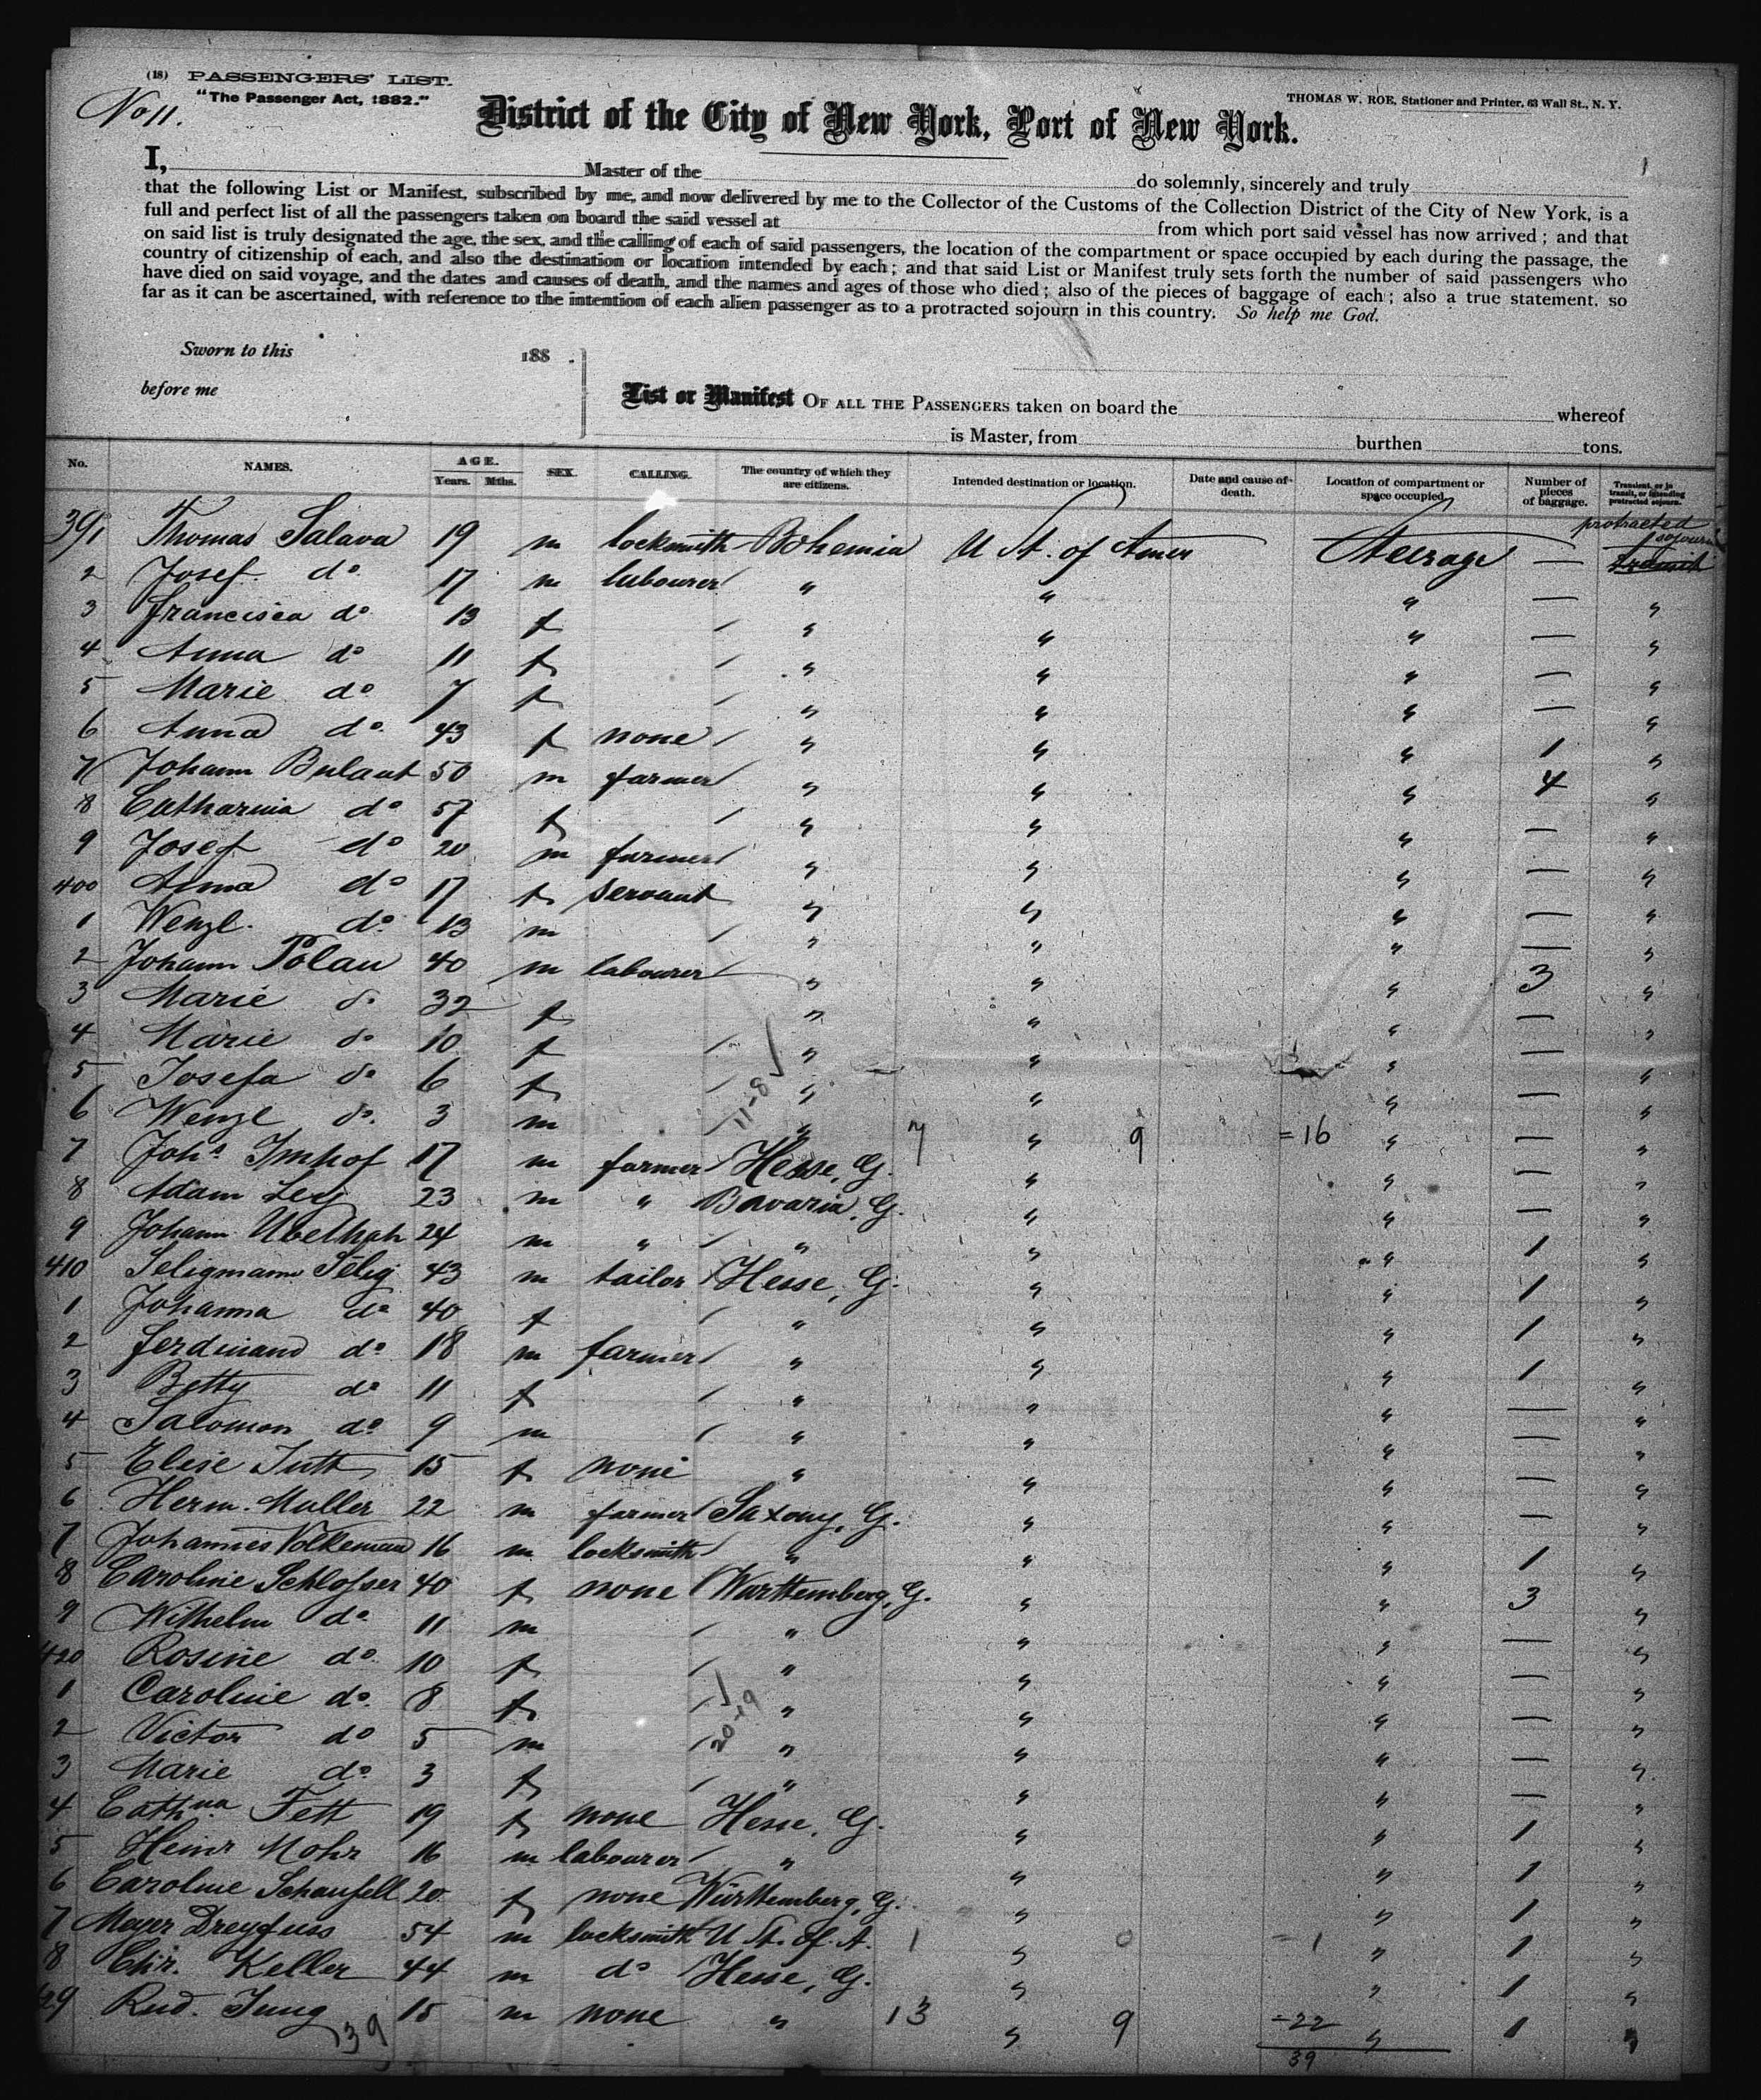 (18) PASSENGERS' LIST.
"The Passenger Act, 1882."
THOMAS W. ROE, Stationer and Printer, 63 Wall St., N. Y.
No 11.
District of the City of New York, Port of New York.
I, Master of the do solemnly, sincerely and truly
that the following List or Manifest, subscribed by me, and now delivered by me to the Collector of the Customs of the Collection District of the City of New York, is a
full and perfect list of all the passengers taken on board the said vessel at from which port said vessel has now arrived; and that
on said list is truly designated the age, the sex, and the calling of each of said passengers, the location of the compartment or space occupied by each during the passage, the
country of citizenship of each, and also the destination or location intended by each; and that said List or Manifest truly sets forth the number of said passengers who
have died on said voyage, and the dates and causes of death, and the names and ages of those who died; also of the pieces of baggage of each; also a true statement, so
far as it can be ascertained, with reference to the intention of each alien passenger as to a protracted sojourn in this country. So help me God.
Sworn to this 188 .
before me
List or Manifest OF ALL THE PASSENGERS taken on board the whereof
is Master, from burthen tons.
No. NAMES. AGE. Years. Mths. SEX. CALLING. The country of which they are citizens. Intended destination or location. Date and cause of death. Location of compartment or space occupied. Number of pieces of baggage. Transient, or in transit, or intending protracted sojourn.
391 Thomas Salava 19 m locksmith Bohemia U St. of Amer Steerage — protracted sojourn transit
2 Josef do 17 m labourer " " " — "
3 Francisca do 13 f " " " — "
4 Anna do 11 f " " " — "
5 Marie do 7 f " " " — "
6 Anna do 43 f none " " " 1 "
7 Johann Bulant 50 m farmer " " " 4 "
8 Catharina do 57 f " " " — "
9 Josef do 20 m farmer " " " — "
400 Anna do 17 f servant " " " — "
1 Wenzl do 13 m " " " — "
2 Johann Polau 40 m labourer " " " 3 "
3 Marie do 32 f " " " — "
4 Marie do 10 f " " " — "
5 Josefa do 6 f " " " — "
6 Wenzl do 3 m 11-8 " 7 " 9 =16 " — "
7 Johs Imhof 17 m farmer Hesse, G. " " — "
8 Adam 23 m " Bavaria, G. " " — "
9 Johann 24 m " " " " 1 "
410 Seligmann Selig 43 m tailor Hesse, G. " " 1 "
1 Johanna do 40 f " " " 1 "
2 Ferdinand do 18 m farmer " " " 1 "
3 Betty do 11 f " " " — "
4 Salomon do 9 m " " " — "
5 Elise 15 f none " " " — "
6 Herm. Muller 22 m farmer Saxony, G. " " — "
7 Johannes Volkemand 16 m locksmith " " " 1 "
8 Caroline Schlosser 40 f none Württemberg, G. " " 3 "
9 Wilhelm do 11 m " " " — "
420 Rosine do 10 f " " " — "
1 Caroline do 8 f " " " — "
2 Victor do 5 m 20-19 " " " — "
3 Marie do 3 f " " " — "
4 Cathna Fett 19 f none Hesse, G. " " 1 "
5 Heinr Mohr 16 m labourer " " " 1 "
6 Caroline Schaufell 20 f none Württemberg, G. " " 1 "
7 Meyer Dreyfuss 54 m locksmith U St. of A. 1 " 0 =1 " 1 "
8 Chr. Keller 44 m do Hesse, G. " " 1 "
429 Rud. Jung 15 m none " 13 " 9 =22 " 1 "
39 39